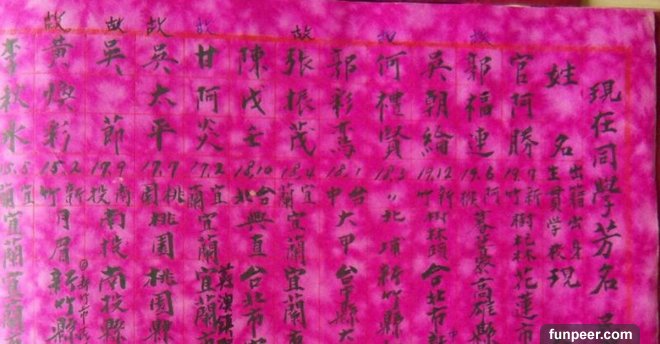 現在同學芳名
姓名 出生 籍貫 出身學校 現
官阿勝 19.9 新竹 樹杞林 花蓮市
故 郭福連 19.6 高雄縣
吳朝綸 19.12 新竹 樹林頭 台北市
故 何禮賢 18.3 〃 北埔 新竹縣
郭彩喬 18.1 台中 大甲 台中縣大
故 張振茂 18.4 宜蘭 宜蘭 宜蘭
陳戊壬 18.10 台北 興直 台北市
故 甘阿炎 17.2 宜蘭 宜蘭 宜蘭市
蘇澳鎮
故 吳太平 17.7 桃園 桃園 桃園縣
故 吳節 17.9 南投 南投 南投縣
故 黃煥彩 15.2 新竹 月眉 新竹縣
新竹市
李秋水 15.5 宜蘭 宜蘭 宜蘭
funpeer.com